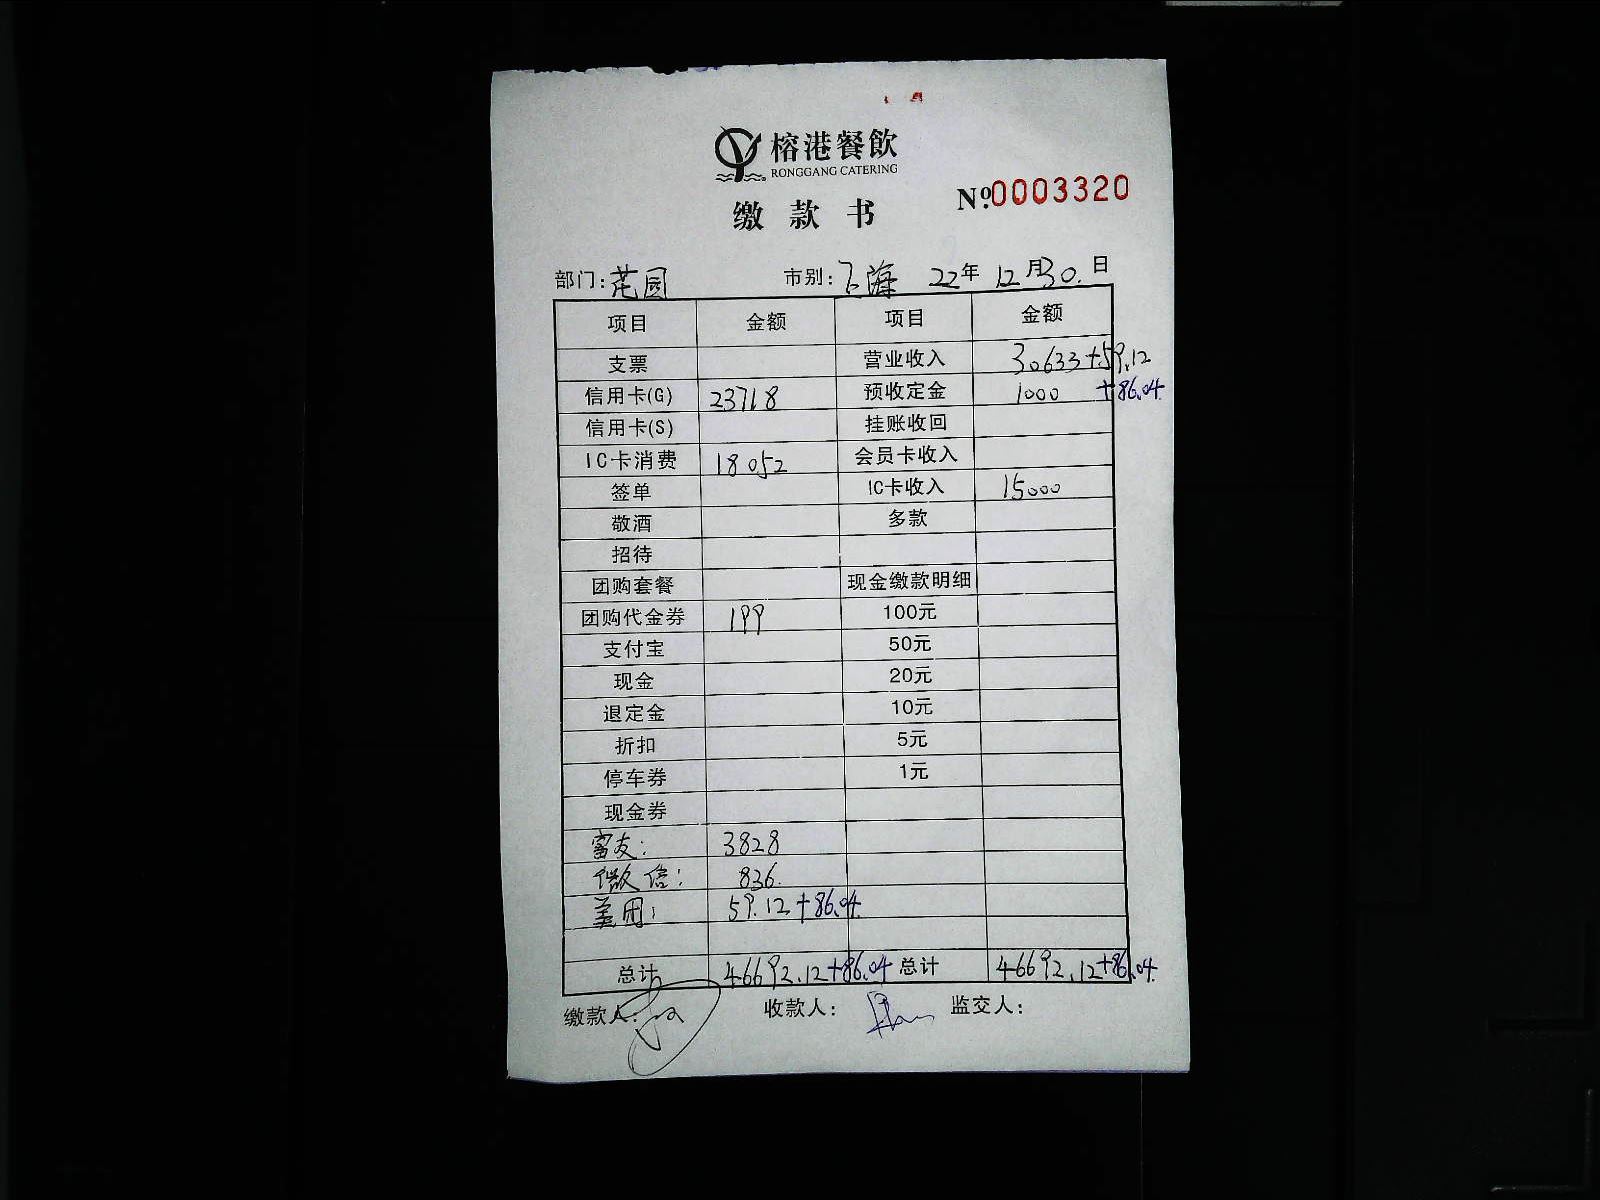 榕港餐飲
RONGGANG CATERING
缴款书 №0003320
部门: 花园 市别: 上海 22年 12月30.日
项目 金额 项目 金额
支票 营业收入 30633+59.12
信用卡(G) 23718 预收定金 1000 +86.04
信用卡(S) 挂账收回
IC卡消费 18052 会员卡收入
签单 IC卡收入 15000
敬酒 多款
招待
团购套餐 现金缴款明细
团购代金券 199 100元
支付宝 50元
现金 20元
退定金 10元
折扣 5元
停车券 1元
现金券
3828
微信: 836.
美团: 59.12+86.04
总计 46692.12+86.04 总计 46692.12+86.04
缴款人: 收款人: 监交人: